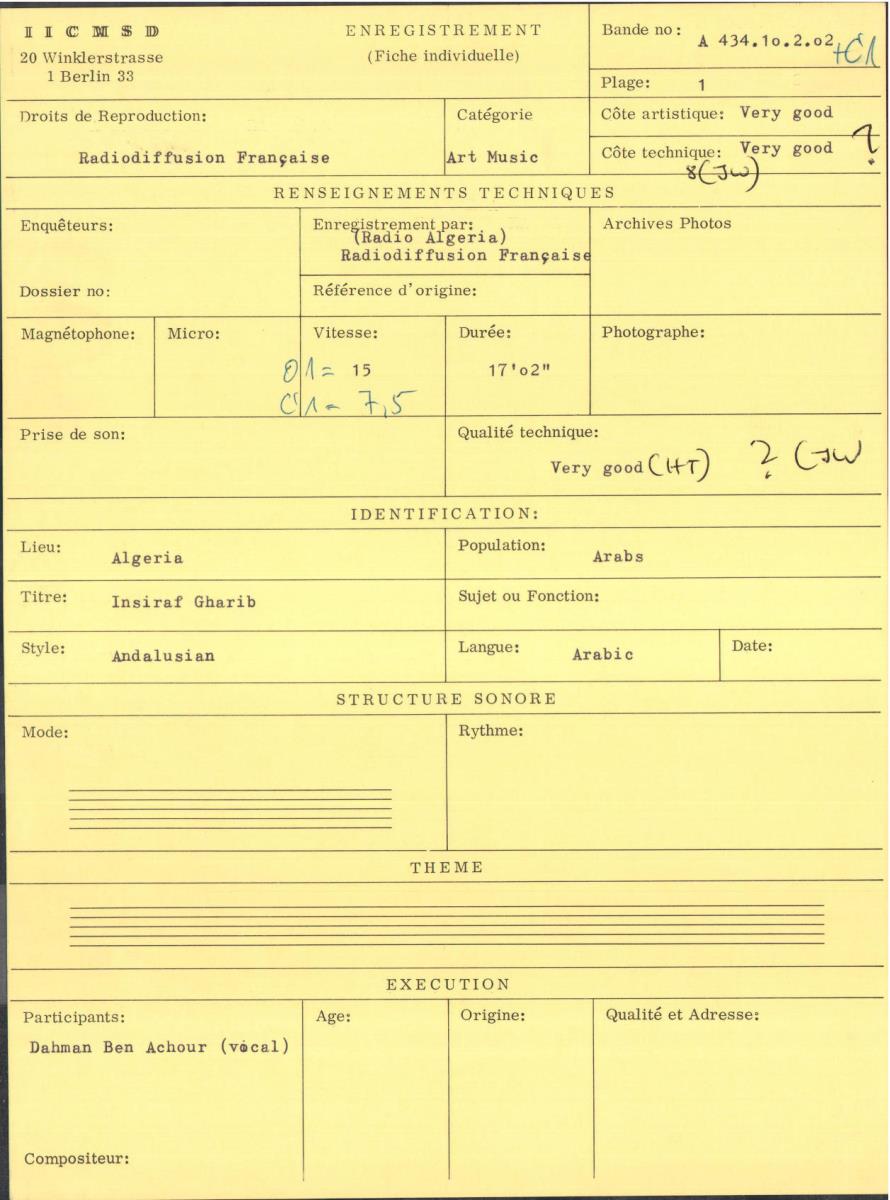 IICMSD
20 Winklerstrasse
1 Berlin 33
ENREGISTREMENT
(Fiche individuelle)
Bande no: A 434.1o.2.o2 +C1
Plage: 1
Droits de Reproduction:
Radiodiffusion Française
Catégorie
Art Music
Côte artistique: Very good
Côte technique: Very good ?
8(JW)
RENSEIGNEMENTS TECHNIQUES
Enquêteurs:
Dossier no:
Enregistrement par:
(Radio Algeria)
Radiodiffusion Française
Référence d'origine:
Archives Photos
Magnétophone:
Micro:
Vitesse:
O1= 15
C1= 7,5
Durée:
17'o2"
Photographe:
Prise de son:
Qualité technique:
Very good (HT) ? (JW
IDENTIFICATION:
Lieu: Algeria
Population: Arabs
Titre: Insiraf Gharib
Sujet ou Fonction:
Style: Andalusian
Langue: Arabic
Date:
STRUCTURE SONORE
Mode:
Rythme:
THEME
EXECUTION
Participants:
Dahman Ben Achour (vocal)
Compositeur:
Age:
Origine:
Qualité et Adresse: